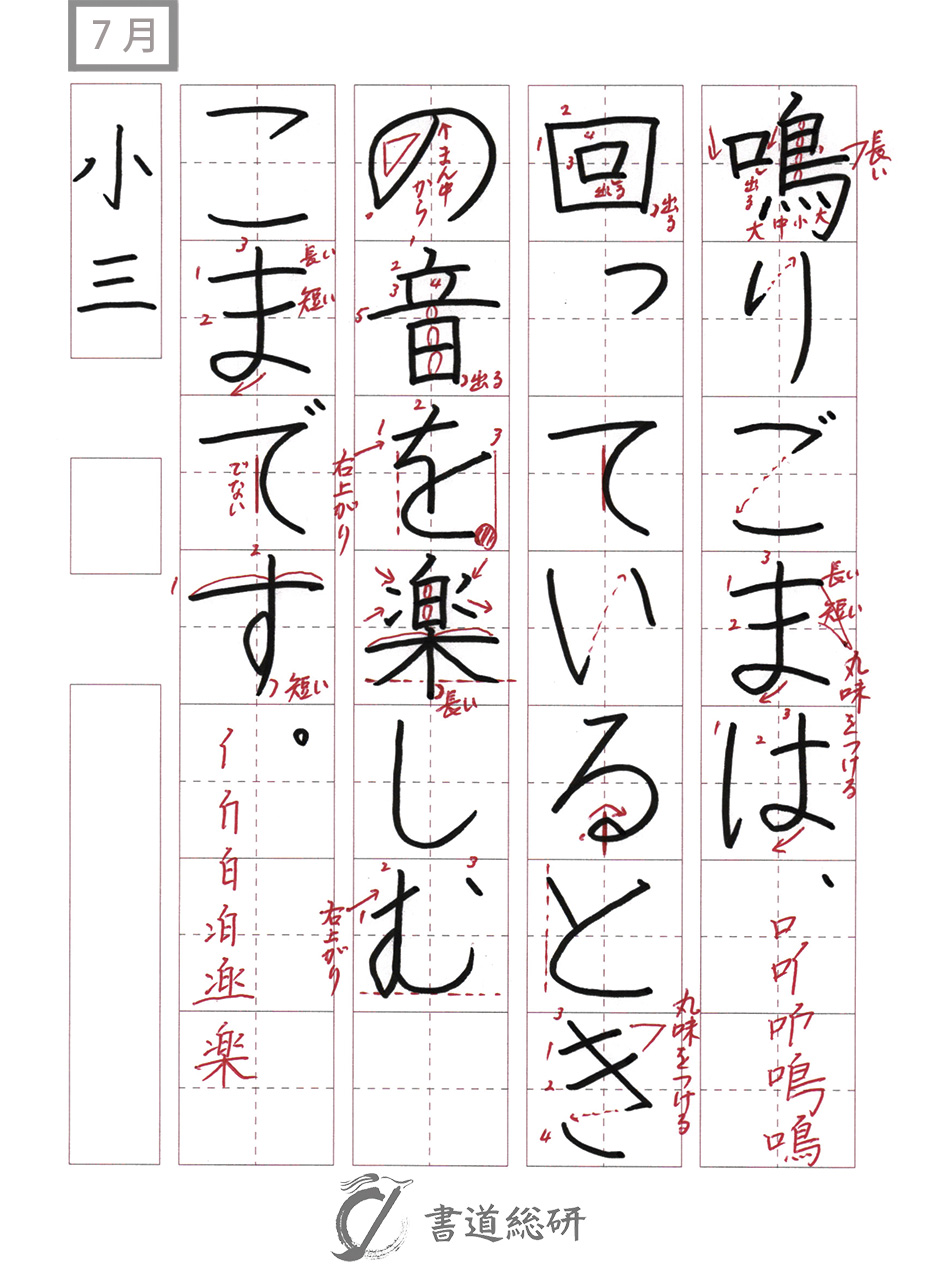 7月
鳴りごまは、
回っているとき
の音を楽しむ
こまです。
小三
長い
出る
大
中
小
大
長い
短い
丸味をつける
口
鳴
鳴
出る
出る
丸味をつける
まん中から
出る
右上がり
長い
右上がり
長い
短い
でない
短い
白
楽
書道総研